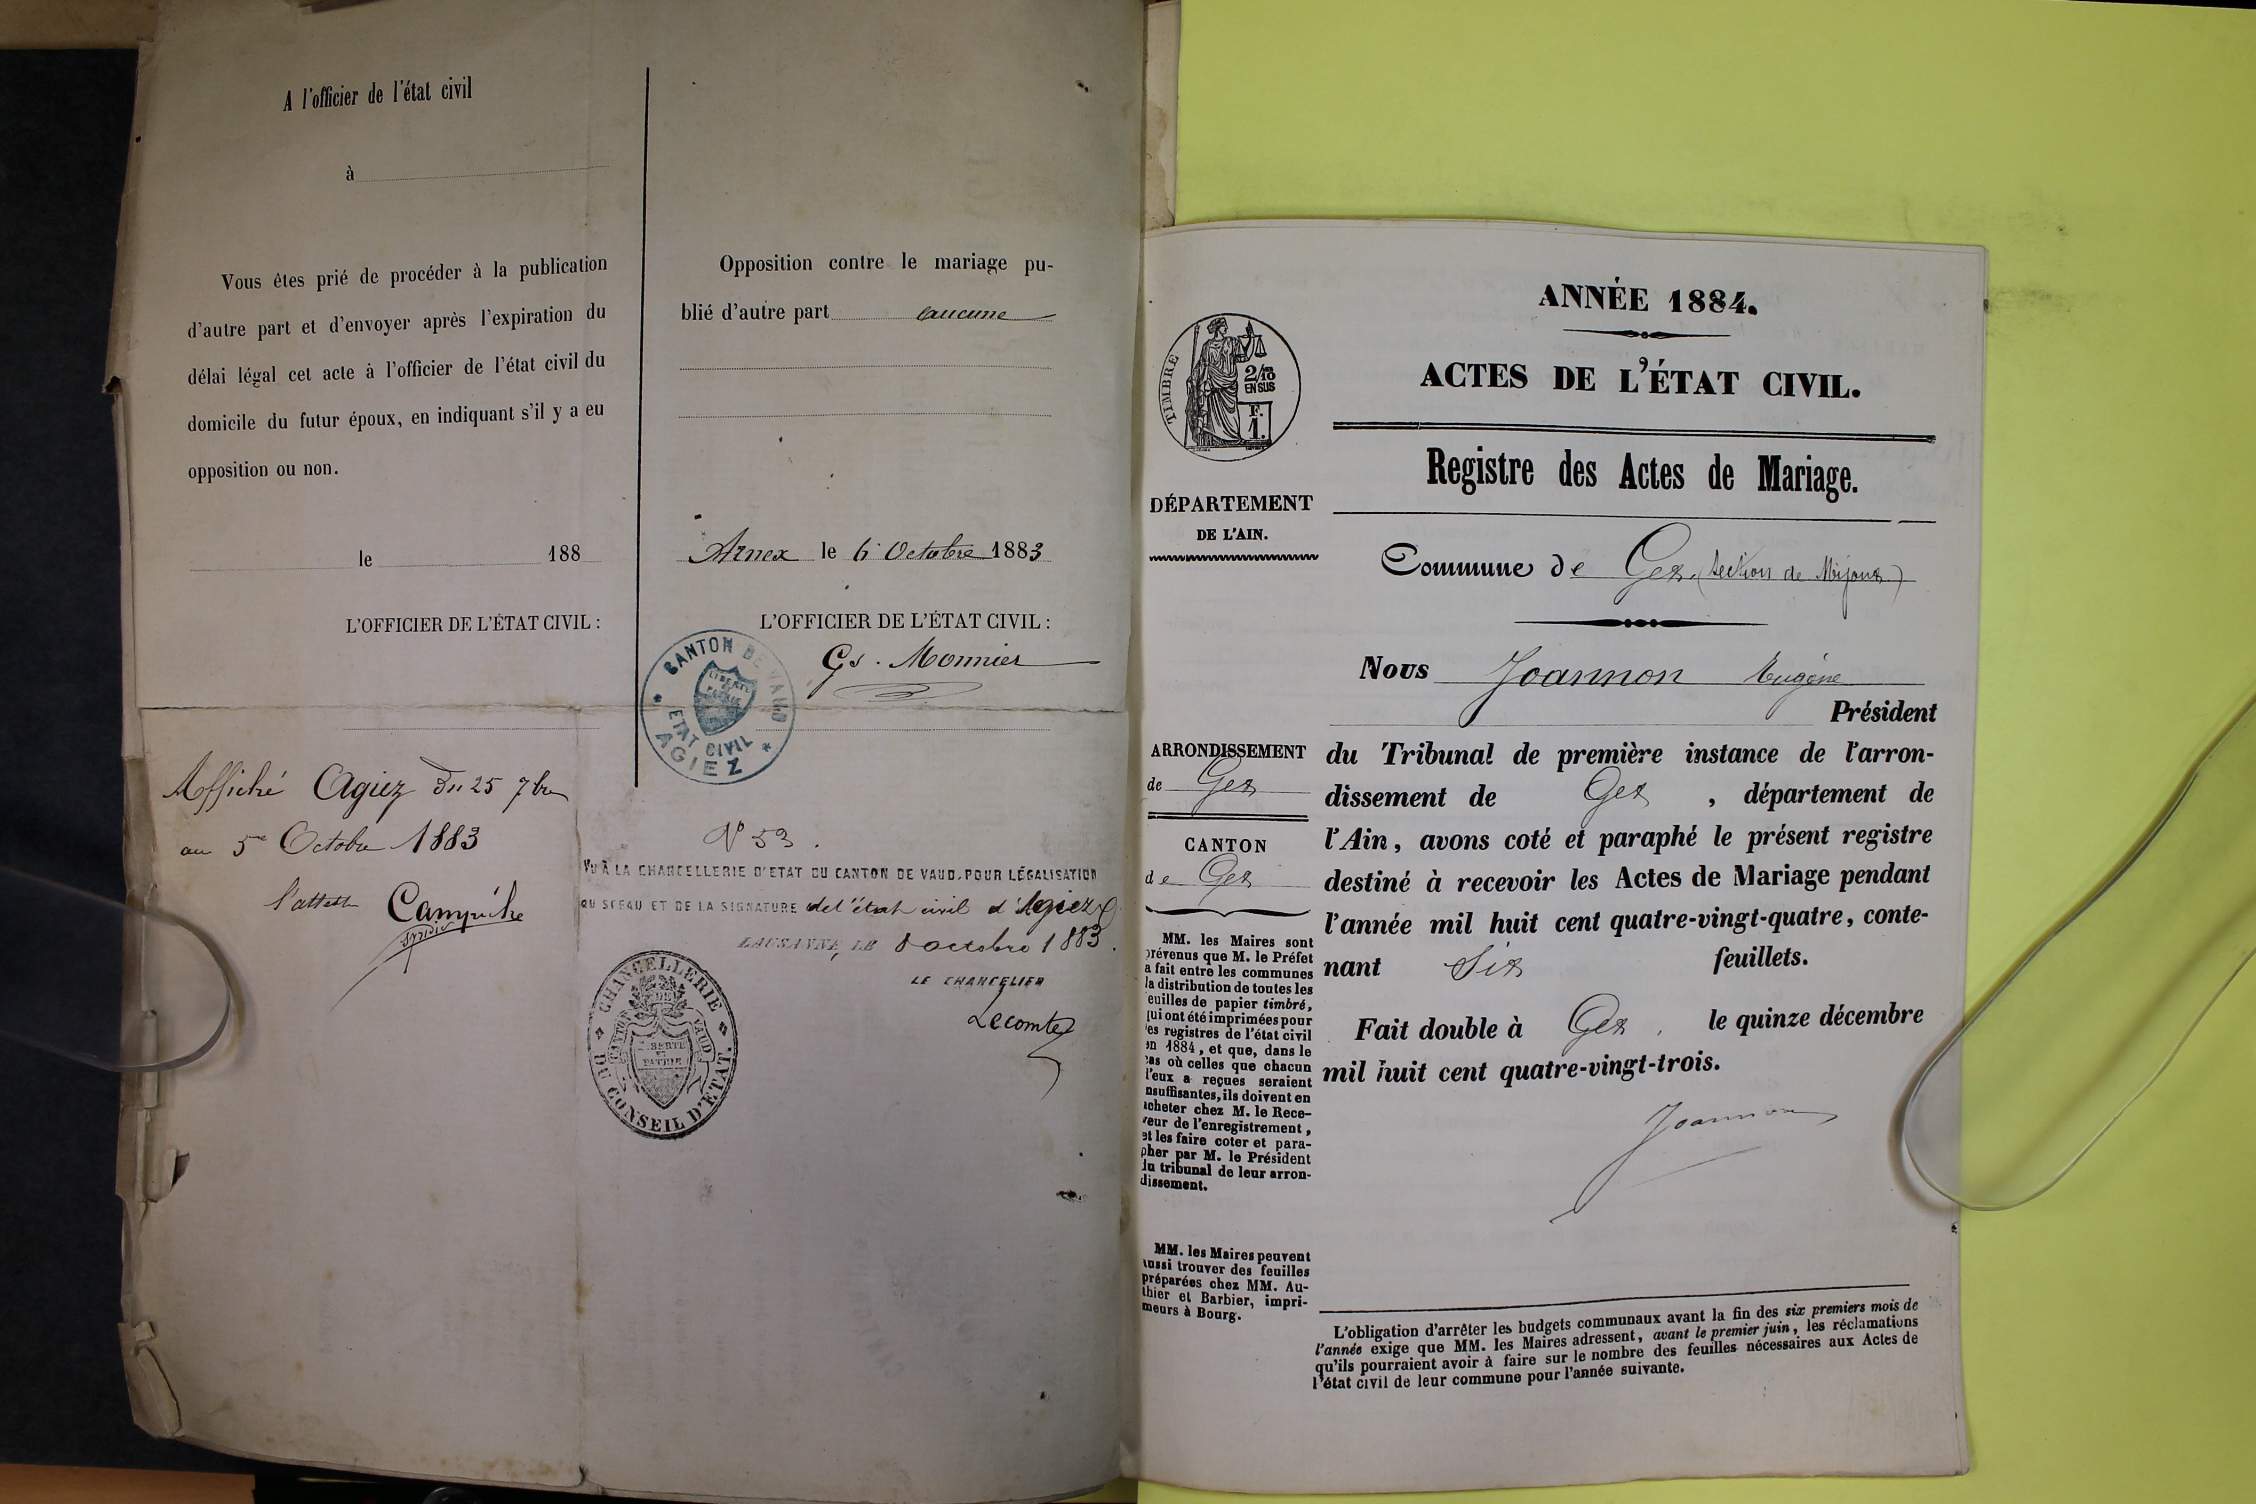 A l'officier de l'état civil
à
Vous êtes prié de procéder à la publication
d'autre part et d'envoyer après l'expiration du
délai légal cet acte à l'officier de l'état civil du
domicile du futur époux, en indiquant s'il y a eu
opposition ou non.
le 188
L'OFFICIER DE L'ÉTAT CIVIL :
Affiché Agiez du 25 7bre
au 5e Octobre 1883
l'atteste Campiche
syndic
Opposition contre le mariage pu-
blié d'autre part aucune
Arnex le 6 Octobre 1883
L'OFFICIER DE L'ÉTAT CIVIL :
Gs. Monnier
CANTON DE VAUD
LIBERTÉ
ET
PATRIE
ETAT CIVIL
AGIEZ
N° 53.
VU À LA CHANCELLERIE D'ETAT DU CANTON DE VAUD, POUR LÉGALISATION
DU SCEAU ET DE LA SIGNATURE de l'état civil d'Agiez
LAUSANNE, LE 8 octobre 1883.
LE CHANCELIER
Lecomte
CHANCELLERIE
CANTON DE VAUD
LIBERTÉ
ET
PATRIE
DU CONSEIL D'ÉTAT.
ANNÉE 1884.
ACTES DE L'ÉTAT CIVIL.
Registre des Actes de Mariage.
TIMBRE
2/10
EN SUS
F.
1.
DÉPARTEMENT
DE L'AIN.
ARRONDISSEMENT
de Gex
CANTON
de Gex
MM. les Maires sont
prévenus que M. le Préfet
a fait entre les communes
la distribution de toutes les
feuilles de papier timbré,
qui ont été imprimées pour
les registres de l'état civil
en 1884, et que, dans le
cas où celles que chacun
d'eux a reçues seraient
insuffisantes, ils doivent en
acheter chez M. le Rece-
veur de l'enregistrement,
et les faire coter et para-
pher par M. le Président
du tribunal de leur arron-
dissement.
MM. les Maires peuvent
aussi trouver des feuilles
préparées chez MM. Au-
thier et Barbier, impri-
meurs à Bourg.
Commune de Gex. (Section de Mijoux.)
Nous Joannon Eugène
Président
du Tribunal de première instance de l'arron-
dissement de Gex, département de
l'Ain, avons coté et paraphé le présent registre
destiné à recevoir les Actes de Mariage pendant
l'année mil huit cent quatre-vingt-quatre, conte-
nant Six feuillets.
Fait double à Gex, le quinze décembre
mil huit cent quatre-vingt-trois.
Joannon
L'obligation d'arrêter les budgets communaux avant la fin des six premiers mois de
l'année exige que MM. les Maires adressent, avant le premier juin, les réclamations
qu'ils pourraient avoir à faire sur le nombre des feuilles nécessaires aux Actes de
l'état civil de leur commune pour l'année suivante.